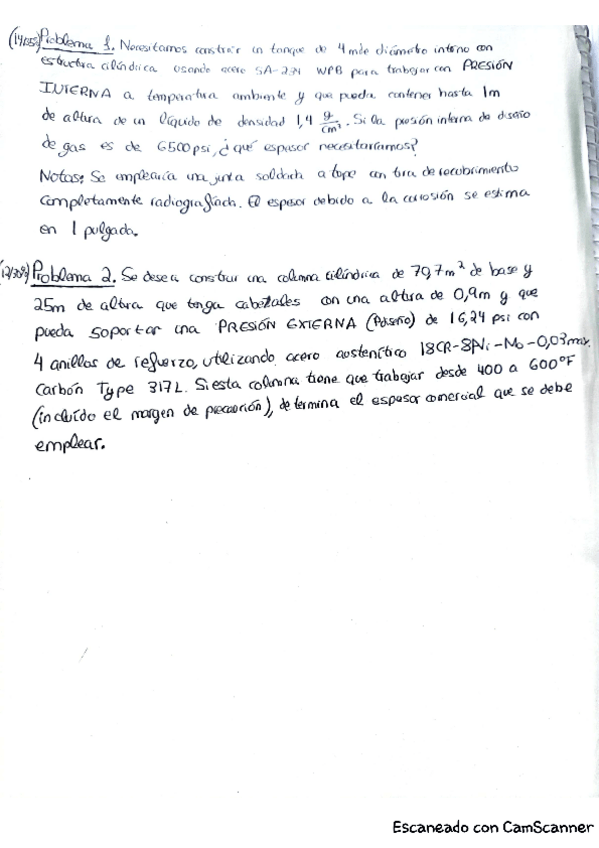 Problema 1. Necesitamos construir un tanque de 4 m de diámetro interno con
estructura cilíndrica usando acero SA-234 WPB para trabajar con PRESIÓN
INTERNA a temperatura ambiente y que pueda contener hasta 1m
de altura de un líquido de densidad 1,4 g/cm³. Si la presión interna de diseño
de gas es de 6500 psi, ¿qué espesor necesitaríamos?
Notas: Se emplearía una junta soldada a tope con tira de recubrimiento
completamente radiografiada. El espesor debido a la corrosión se estima
en 1 pulgada.
Problema 2. Se desea construir una columna cilíndrica de 79,7m² de base y
25m de altura que tenga cabezales con una altura de 0,9m y que
pueda soportar una PRESIÓN EXTERNA (Pdiseño) de 16,24 psi con
4 anillos de refuerzo, utilizando acero austenítico 18CR-8Ni-Mo-0,03max.
Carbón Type 317L. Si esta columna tiene que trabajar desde 400 a 600°F
(incluído el margen de precaución), determina el espesor comercial que se debe
emplear.
Escaneado con CamScanner